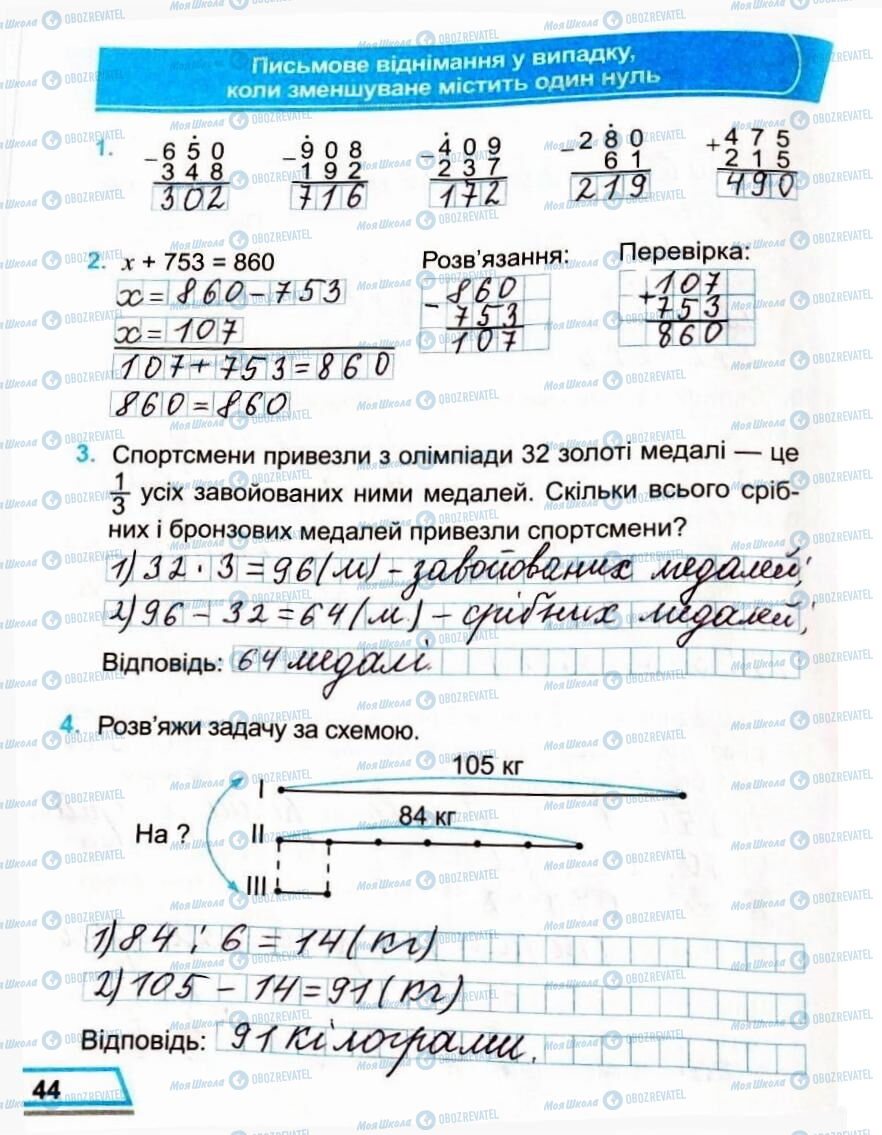 Письмове віднімання у випадку,
коли зменшуване містить один нуль
1. − 650 − 908 − 409 − 280 + 475
348 192 237 61 215
302 716 172 219 490
2. x + 753 = 860 Розв’язання: Перевірка:
x = 860 − 753 − 860 + 107
x = 107 753 753
107 + 753 = 860 107 860
860 = 860
3. Спортсмени привезли з олімпіади 32 золоті медалі — це
1/3 усіх завойованих ними медалей. Скільки всього сріб-
них і бронзових медалей привезли спортсмени?
1) 32 · 3 = 96 (м) – завойованих медалей;
2) 96 – 32 = 64 (м.) – срібних медалей;
Відповідь: 64 медалі.
4. Розв’яжи задачу за схемою.
105 кг
I
84 кг
На ? II
III
1) 84 : 6 = 14 (кг)
2) 105 – 14 = 91 (кг)
Відповідь: 91 кілограми.
44
МояШкола OBOZREVATEL